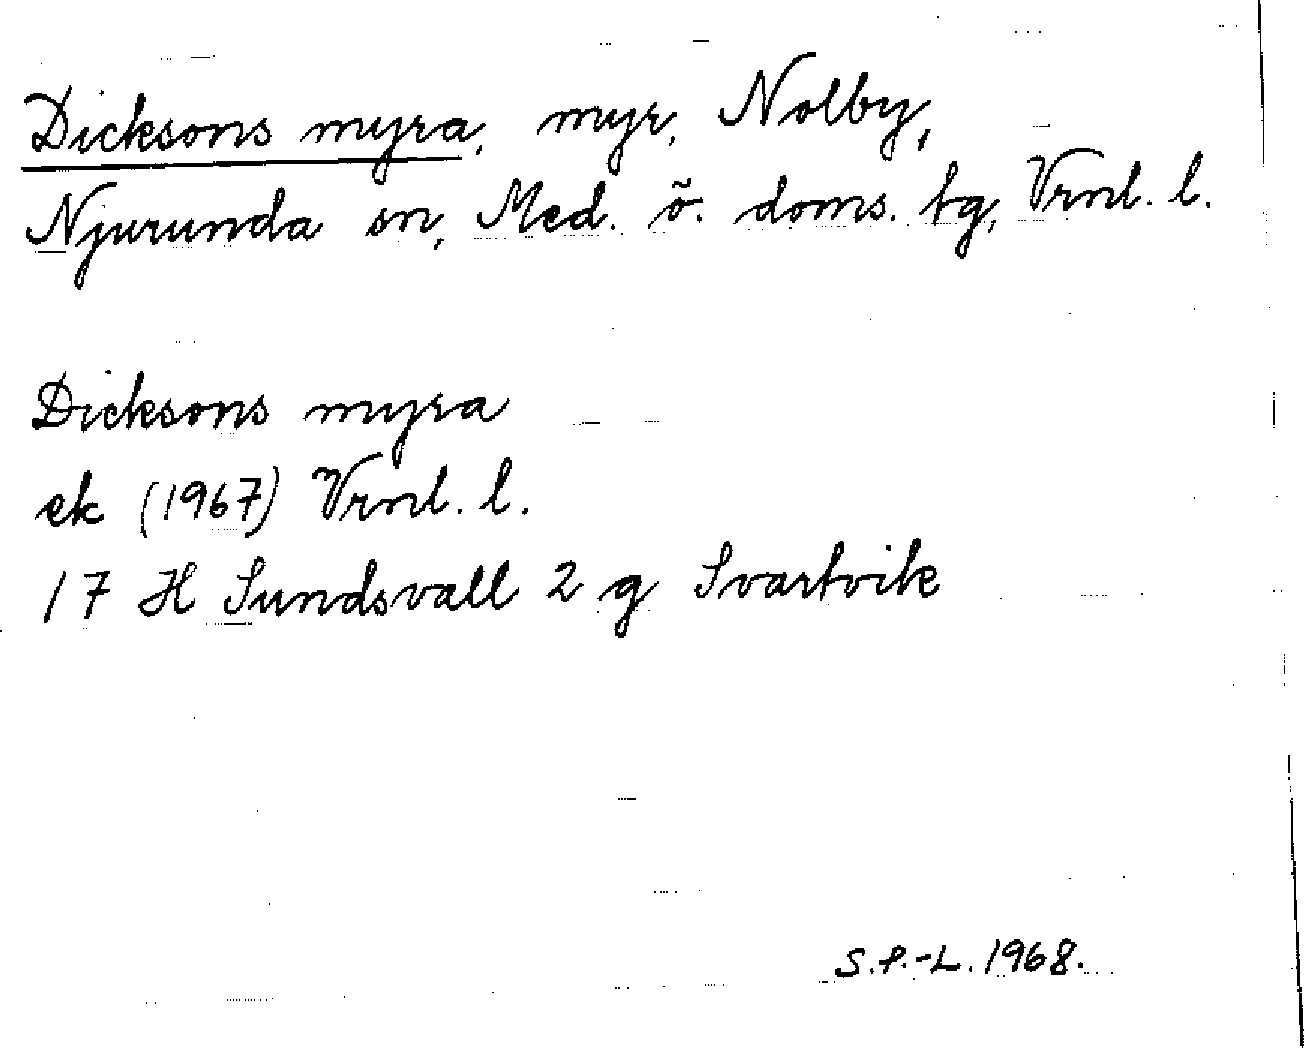 Dicksons myra, myr, Nolby,
Njurunda sn, Med. ö. doms. tg, Vrnl. l.
Dicksons myra
ek (1967) Vrnl. l.
17 H Sundsvall 2 g Svartvik
S.P.-L. 1968.